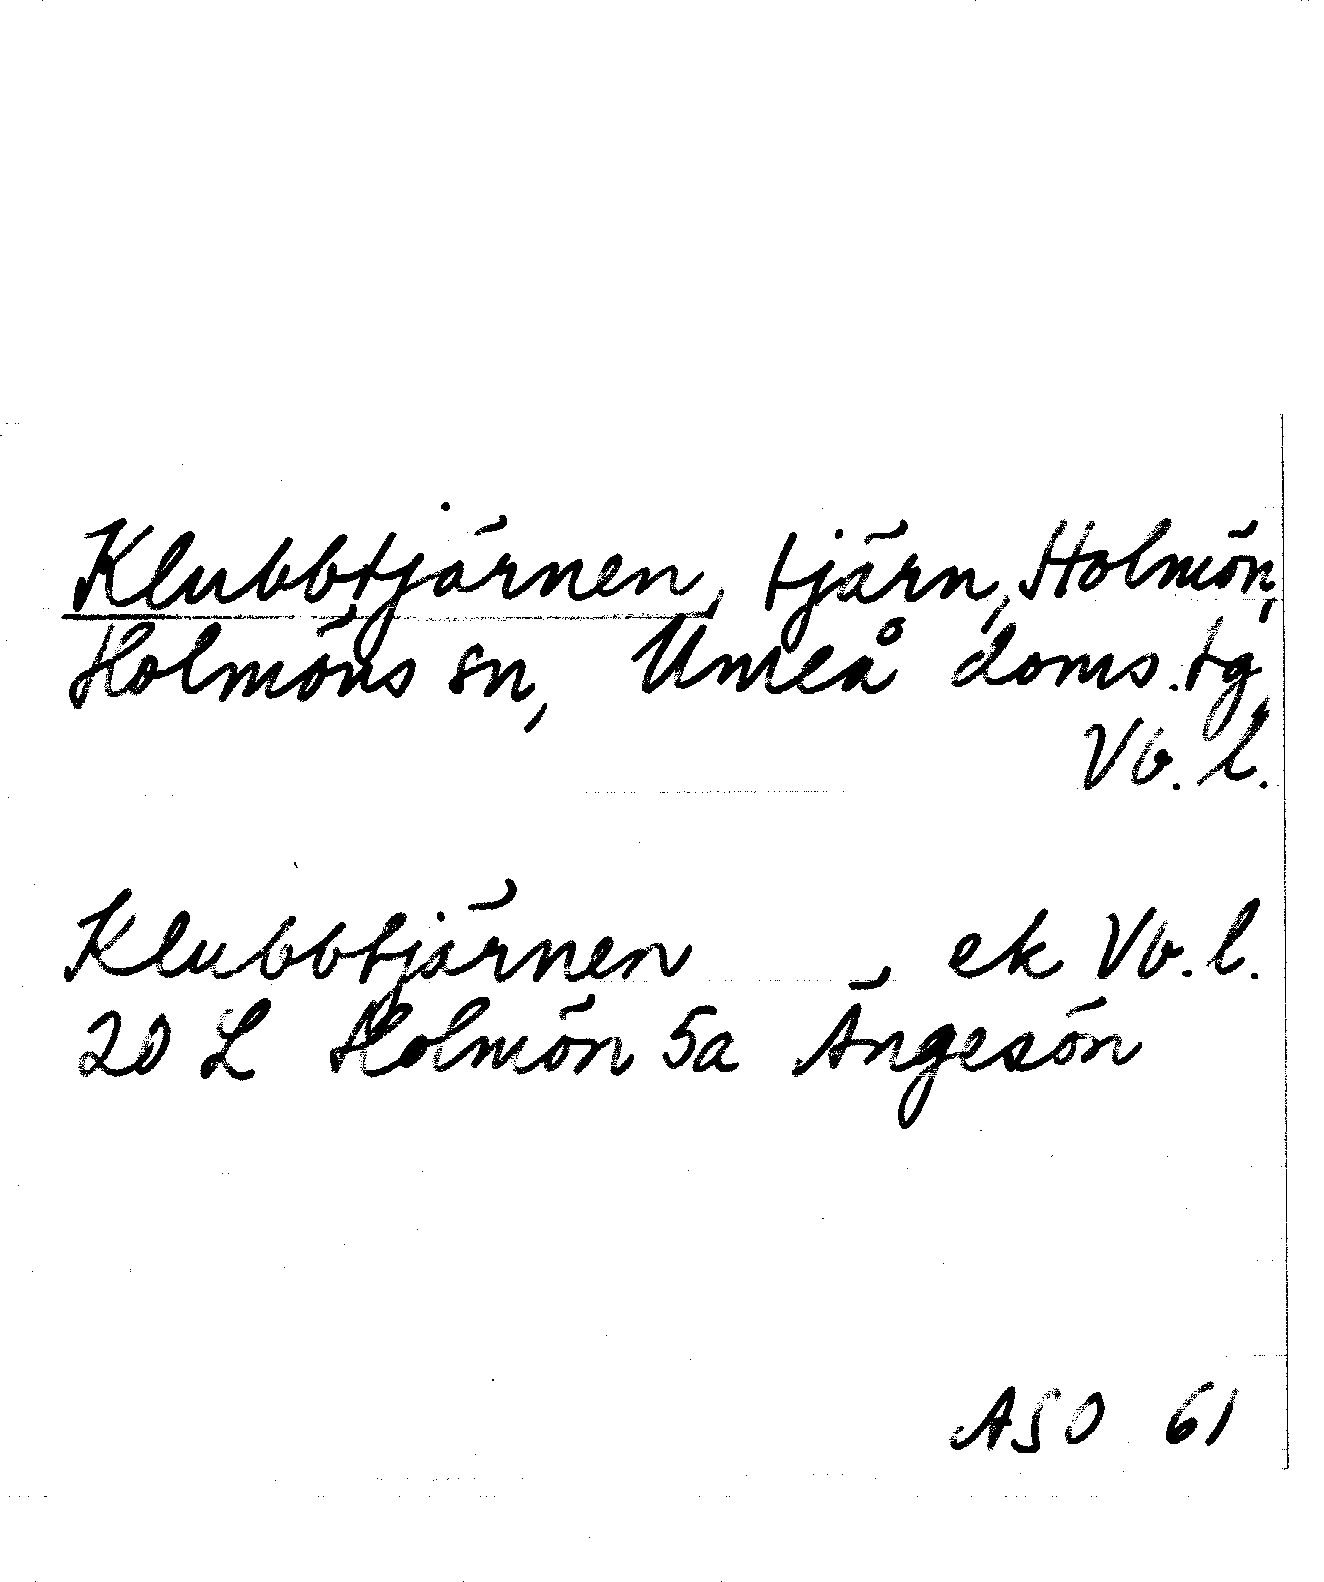 Klubbtjärnen, tjärn, Holmön,
Holmöns sn, Umeå doms.tg,
Vb. l.
Klubbtjärnen ek Vb. l.
20 L Holmön 5a Ängesön
ASO 61